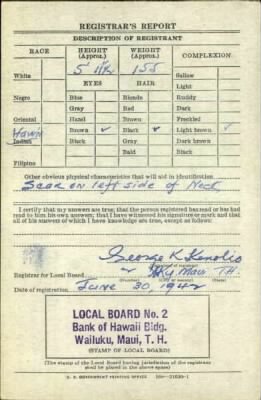 REGISTRAR'S REPORT
DESCRIPTION OF REGISTRANT
RACE HEIGHT (Approx.) WEIGHT (Approx.) COMPLEXION
5' 155
White EYES HAIR Sallow
Light
Negro Blue Blonde Ruddy
Gray Red Dark
Oriental Hazel Brown Freckled
Hawn Brown ✓ Black ✓ Light brown ✓
Indian Black Gray Dark brown
Bald Black
Filipino
Other obvious physical characteristics that will aid in identification
Scar on left side of Neck
I certify that my answers are true; that the person registered has read or has had
read to him his own answers; that I have witnessed his signature or mark and that
all of his answers of which I have knowledge are true, except as follows:
George K
(Signature of registrar)
Registrar for Local Board 2 Maui T.H.
Date of registration June 30, 1942
LOCAL BOARD No. 2
Bank of Hawaii Bldg.
Wailuku, Maui, T. H.
(STAMP OF LOCAL BOARD)
(The stamp of the Local Board having jurisdiction of the registrant
shall be placed in the above space)
U. S. GOVERNMENT PRINTING OFFICE 16—21630-1